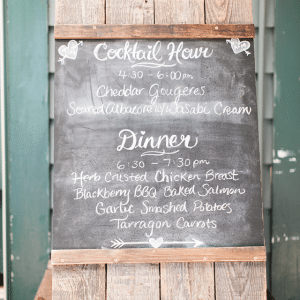 Cocktail Hour
4:30 - 6:00pm
Cheddar Gougeres
Seared Albacore w/ Wasabi Cream
Dinner
6:30 - 7:30pm
Herb Crusted Chicken Breast
Blackberry BBQ Baked Salmon
Garlic Smashed Potatoes
Tarragon Carrots